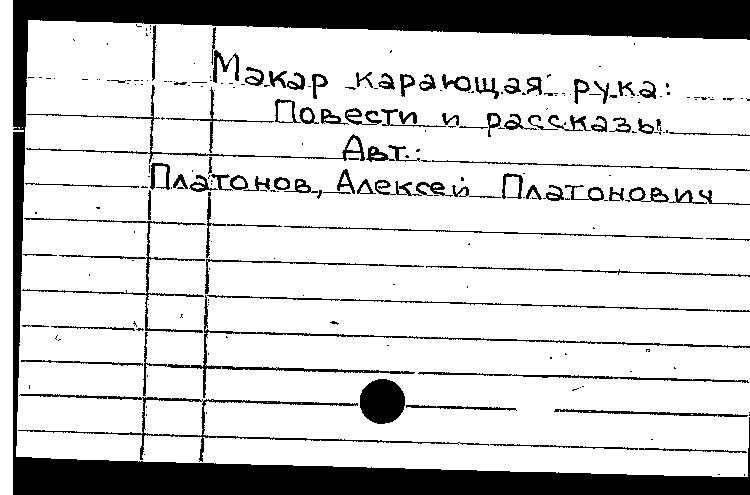 Макар карающая рука:
Повести и рассказы
Авт.:
Платонов, Алексей Платонович